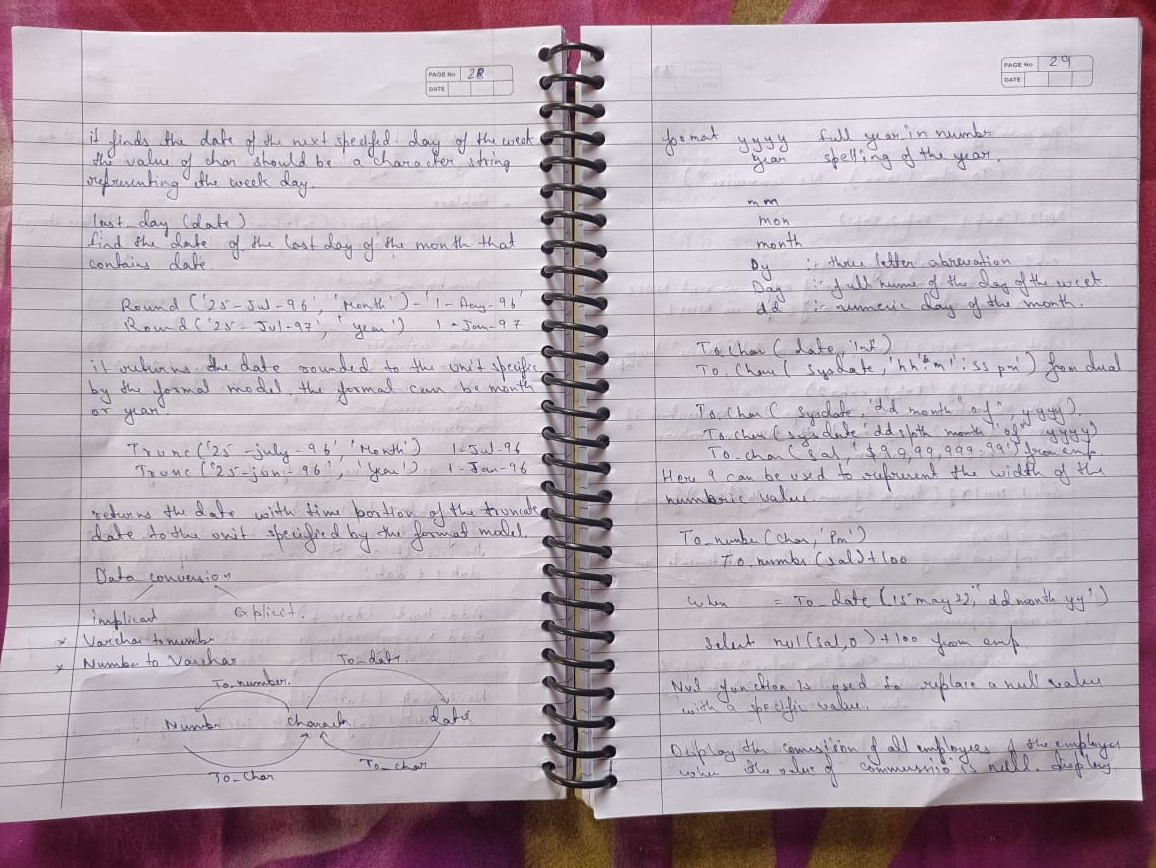 PAGE No 28
DATE
it finds the date of the next specified day of the week
the value of char should be a character string
representing the week day.
last_day (date)
find the date of the last day of the month that
contains date
Round ('25-Jul-96', 'Month') - '1-Aug-96'
Round ('25-Jul-97', 'year') 1-Jan-97
it returns the date rounded to the unit specific
by the formal model. the formal can be month
or year.
Trunc ('25-july-96', 'Month') 1-Jul-96
Trunc ('25-jun-96', 'year') 1-Jan-96
returns the date with time portion of the truncate
date to the unit specified by the format model.
Data conversion
implicad Explicit.
x Varchar to number
x Number to Varchar
To_date.
To_number.
Number character date
To_char To_char
PAGE No 29
DATE
format yyyy full year in number
year spelling of the year.
mm
mon
month
Dy :- three letter abrevation
Day :- full name of the day of the week.
dd :- numeric day of the month.
To_char (date, 'fmt')
To_char ( sysdate, 'hh:m':ss pm') from dual
To_char ( sysdate, 'dd month "of", yyyy).
To_char (sysdate 'ddspth month "of" yyyy)
To_char (sal, '$99,99,999.99') from emp.
Here 9 can be used to represent the width of the
numbric value.
To_number (char, 'Pm')
To_number (sal) + 100
when = To_date (15 may 22, 'dd month yy')
select nvl (sal,0) + 100 from emp.
Nvl function is used to replace a null value
with a specific value.
Display the comission of all employees of the employee
when the value of commussio is null. display